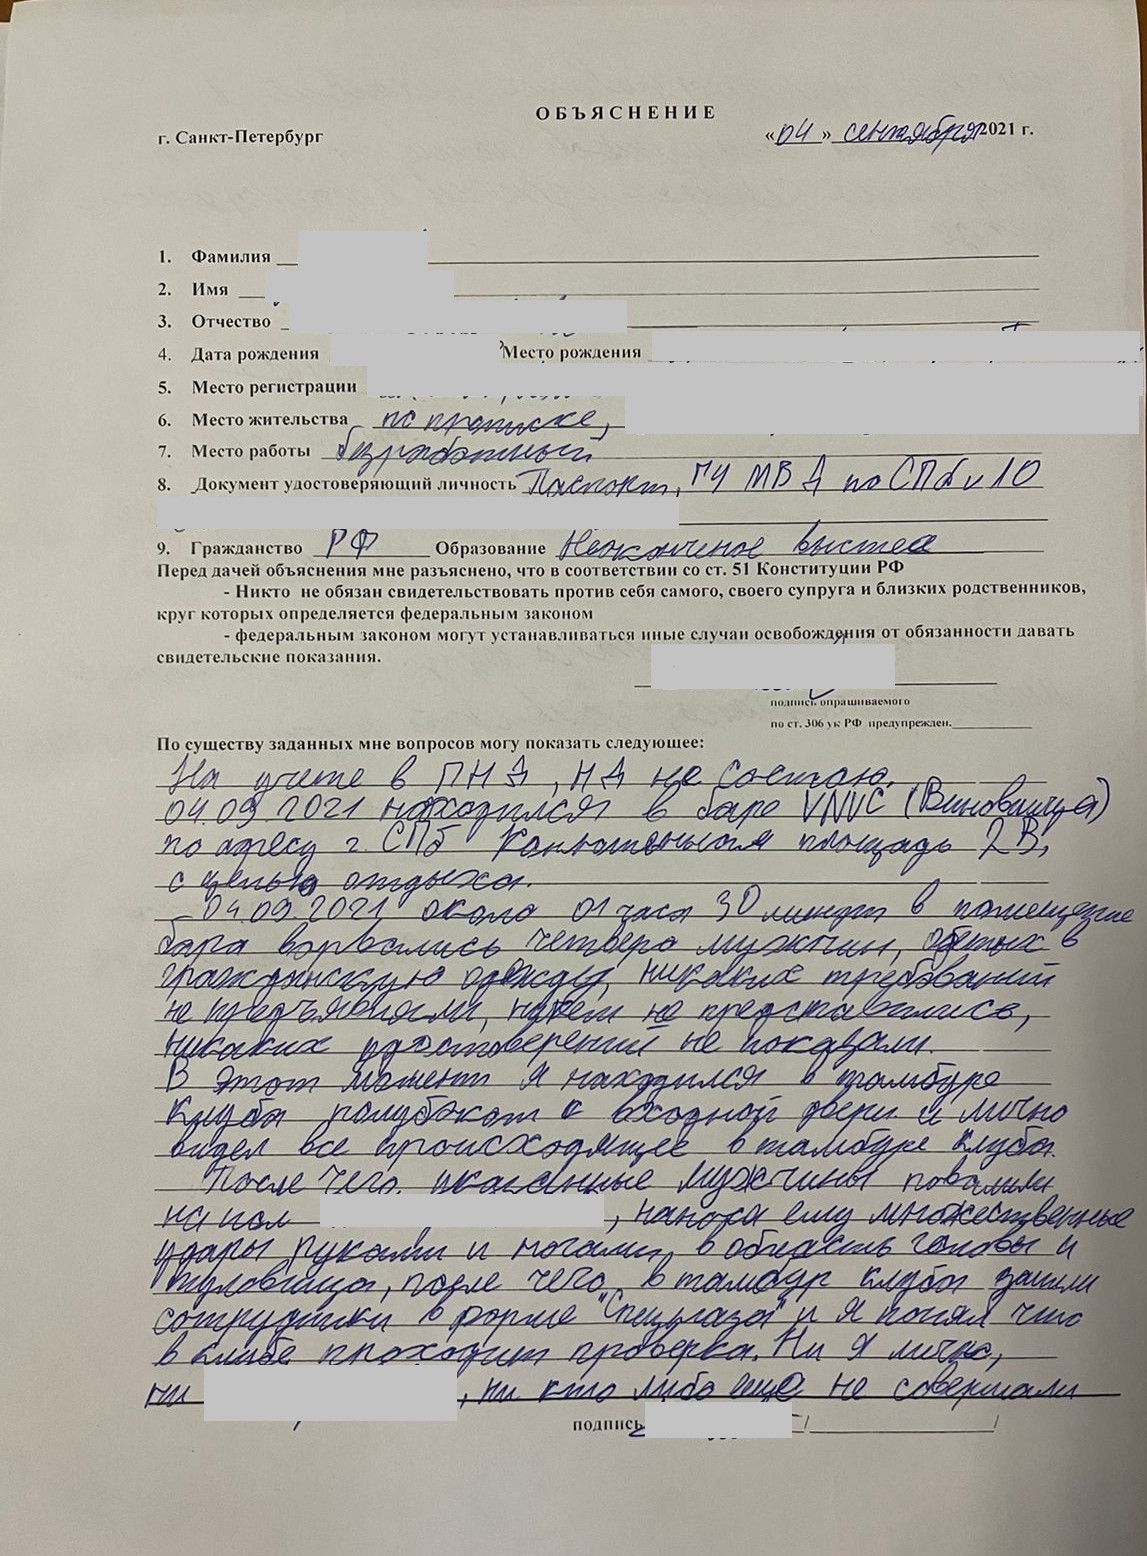 ОБЪЯСНЕНИЕ
г. Санкт-Петербург «04» сентября 2021 г.
1. Фамилия
2. Имя
3. Отчество
4. Дата рождения Место рождения
5. Место регистрации
6. Место жительства по прописке,
7. Место работы безработный
8. Документ удостоверяющий личность Паспорт, ГУ МВД по СПб и ЛО
9. Гражданство РФ Образование Неоконченое высшее
Перед дачей объяснения мне разъяснено, что в соответствии со ст. 51 Конституции РФ
- Никто не обязан свидетельствовать против себя самого, своего супруга и близких родственников,
круг которых определяется федеральным законом
- федеральным законом могут устанавливаться иные случаи освобождения от обязанности давать
свидетельские показания.
подпись опрашиваемого
по ст. 306 ук РФ предупрежден.
По существу заданных мне вопросов могу показать следующее:
На учете в ПНД, НД не состою.
04.09.2021 находился в баре VNVC (Виновница)
по адресу г. СПб Конюшенная площадь 2В,
с целью отдыха.
04.09.2021 около 01 часа 30 минут в помещение
бара ворвались четверо мужчин, одетых в
гражданскую одежду, никаких требований
не предъявляли, никем не представились,
никаких удостоверений не показали.
В этот момент я находился в тамбуре
клуба полубоком к входной двери и лично
видел все происходящее в тамбуре клуба.
После чего указанные мужчины повалили
на пол , нанося ему множественные
удары руками и ногами, в область головы и
туловища, после чего, в тамбур клуба зашли
сотрудники в форме "Спецназа" и я понял что
в клубе проходит проверка. Ни я лично,
ни , ни кто либо еще не совершали
подпись / /